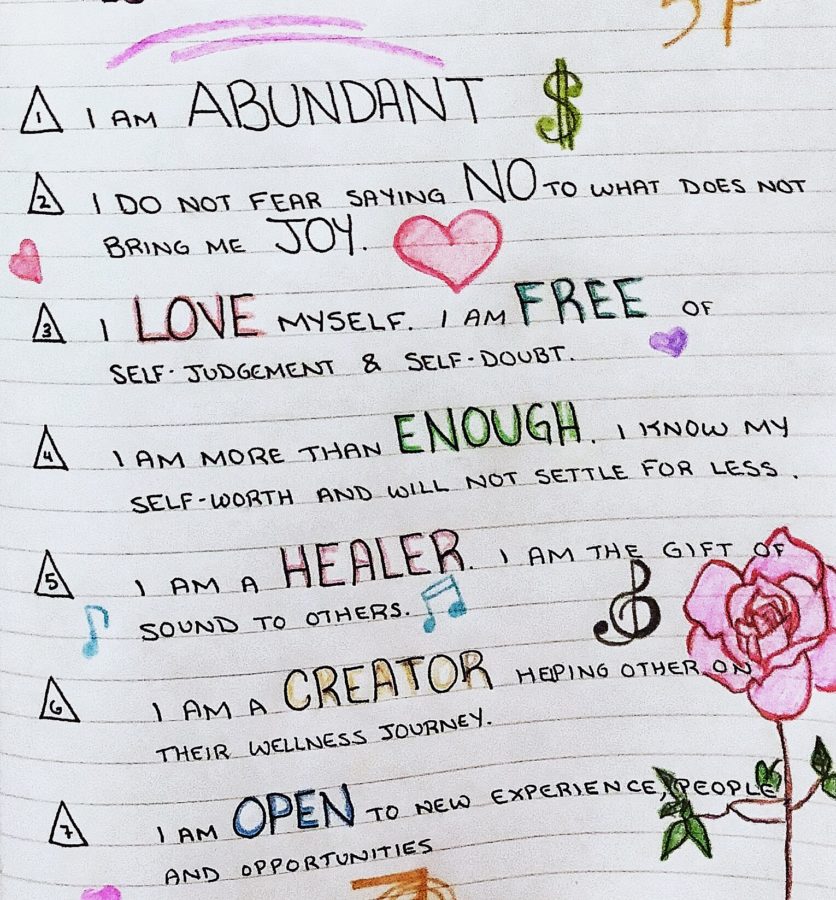 1 I AM ABUNDANT $
2 I DO NOT FEAR SAYING NO TO WHAT DOES NOT
BRING ME JOY.
3 I LOVE MYSELF. I AM FREE OF
SELF-JUDGEMENT & SELF-DOUBT.
4 I AM MORE THAN ENOUGH. I KNOW MY
SELF-WORTH AND WILL NOT SETTLE FOR LESS.
5 I AM A HEALER. I AM THE GIFT OF
SOUND TO OTHERS.
6 I AM A CREATOR HElPING OTHER ON
THEIR WELLNESS JOURNEY.
7 I AM OPEN TO NEW EXPERIENCE, PEOPLE
AND OPPORTUNITIES